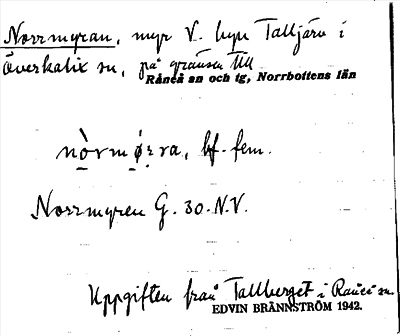 Norrmyran, myr V. byn Talljärv i
Överkalix sn, på gränsen till
Råneå sn och tg, Norrbottens län
nòrmǿrra, bf. fem.
Norrmyren G. 30.N.V.
Uppgiften från Tallberget i Råneå sn.
EDVIN BRÄNNSTRÖM 1942.